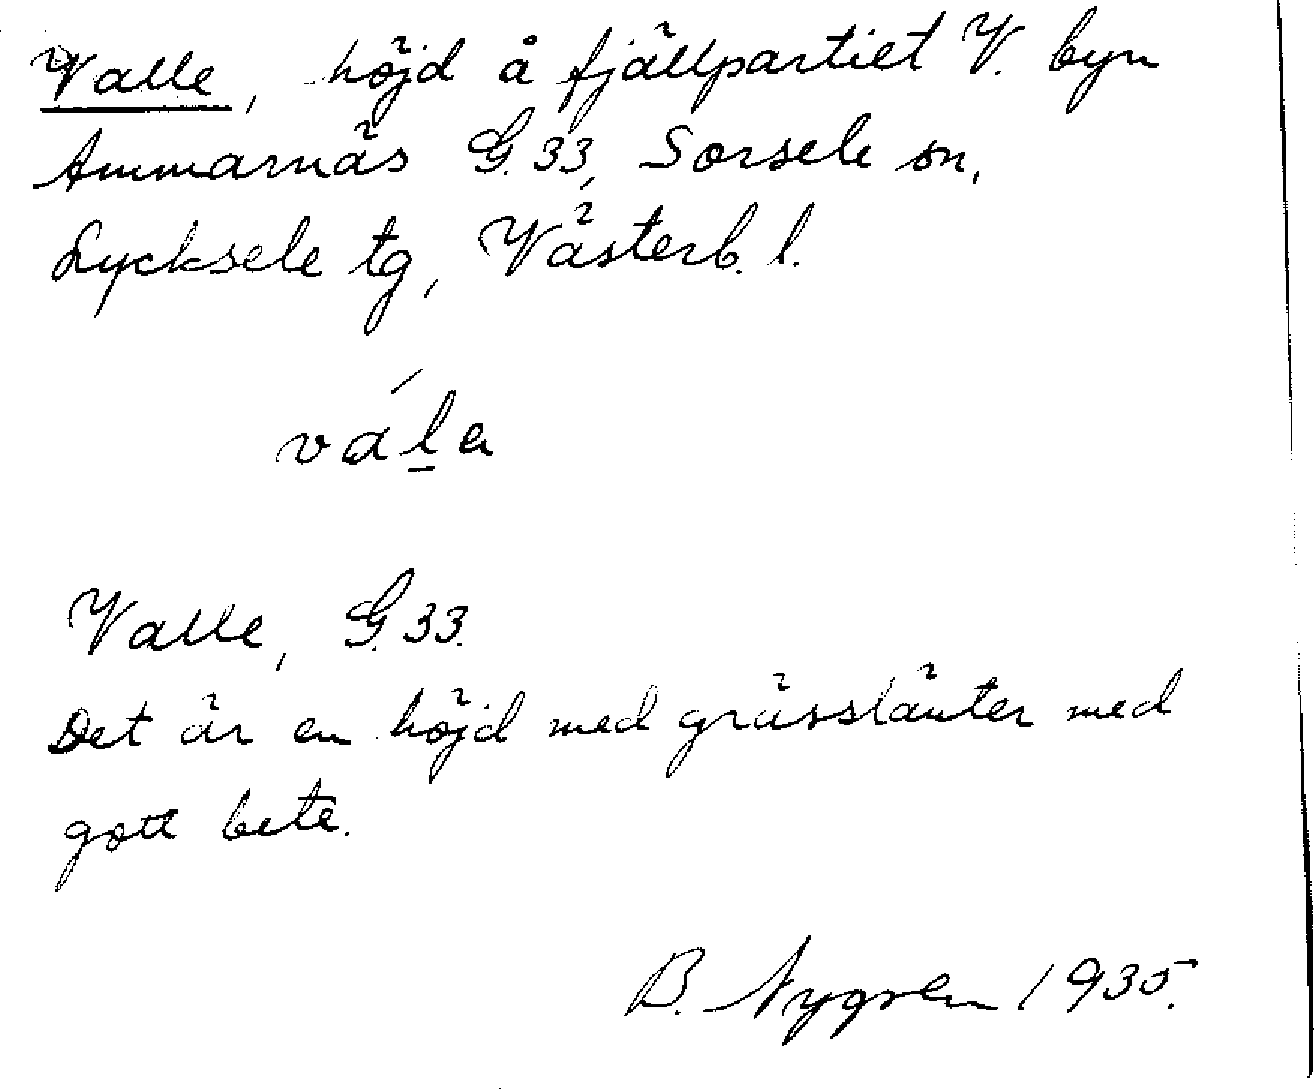 Valle, höjd å fjällpartiet V. byn
Ammarnäs G.33, Sorsele sn,
Lycksele tg, Västerb. l.
vála
Valle, G.33.
Det är en höjd med grässlänter med
gott bete.
B. Nygren 1935.